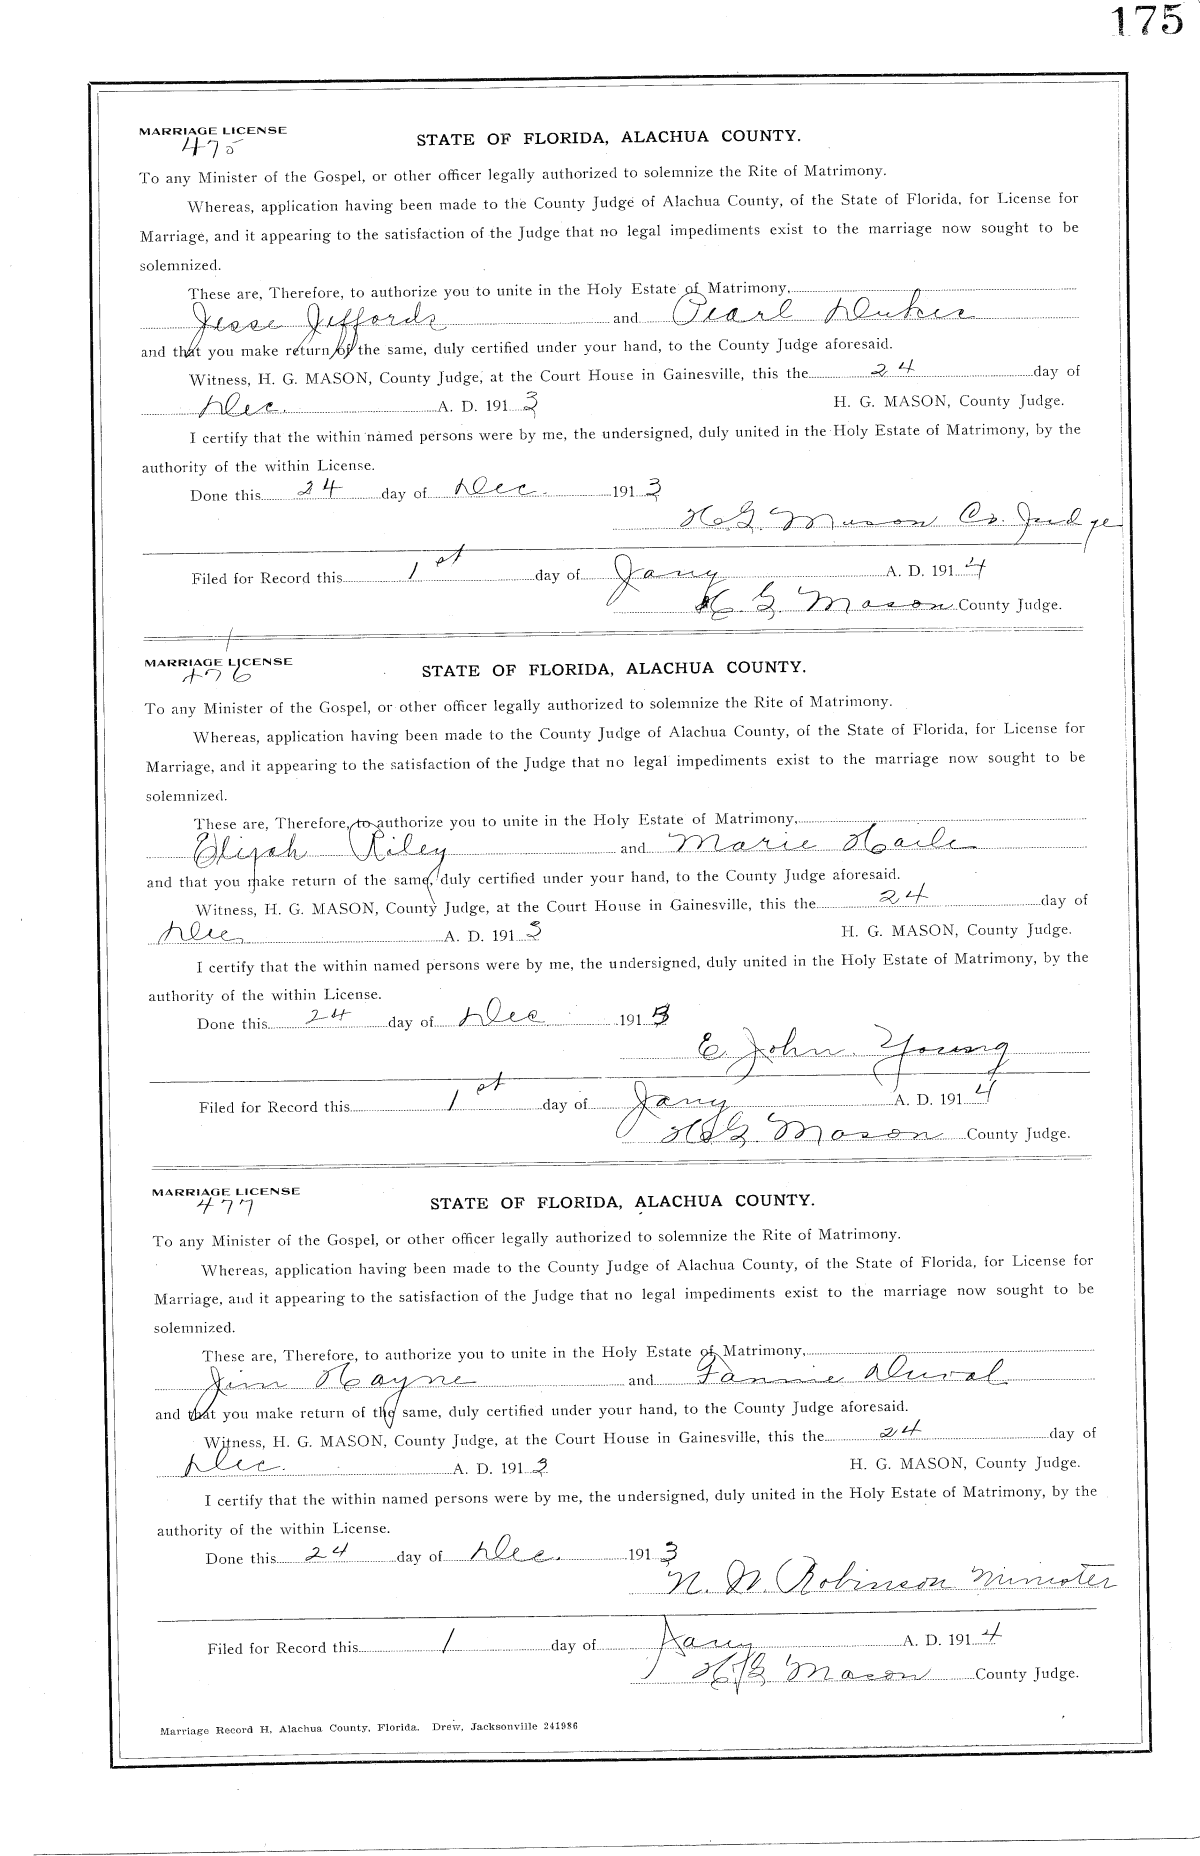 175
MARRIAGE LICENSE
475
STATE OF FLORIDA, ALACHUA COUNTY.
To any Minister of the Gospel, or other officer legally authorized to solemnize the Rite of Matrimony.
Whereas, application having been made to the County Judge of Alachua County, of the State of Florida, for License for
Marriage, and it appearing to the satisfaction of the Judge that no legal impediments exist to the marriage now sought to be
solemnized.
These are, Therefore, to authorize you to unite in the Holy Estate of Matrimony,
Jesse Jeffords and Pearl Dukes
and that you make return of the same, duly certified under your hand, to the County Judge aforesaid.
Witness, H. G. MASON, County Judge, at the Court House in Gainesville, this the 24 day of
Dec. A. D. 1913 H. G. MASON, County Judge.
I certify that the within named persons were by me, the undersigned, duly united in the Holy Estate of Matrimony, by the
authority of the within License.
Done this 24 day of Dec. 1913
H. G. Mason Co. Judge
Filed for Record this 1st day of Jany A. D. 1914
H G Mason County Judge.
MARRIAGE LICENSE
476
STATE OF FLORIDA, ALACHUA COUNTY.
To any Minister of the Gospel, or other officer legally authorized to solemnize the Rite of Matrimony.
Whereas, application having been made to the County Judge of Alachua County, of the State of Florida, for License for
Marriage, and it appearing to the satisfaction of the Judge that no legal impediments exist to the marriage now sought to be
solemnized.
These are, Therefore, to authorize you to unite in the Holy Estate of Matrimony,
Elijah Riley and Marie Haile
and that you make return of the same, duly certified under your hand, to the County Judge aforesaid.
Witness, H. G. MASON, County Judge, at the Court House in Gainesville, this the 24 day of
Dec A. D. 1913 H. G. MASON, County Judge.
I certify that the within named persons were by me, the undersigned, duly united in the Holy Estate of Matrimony, by the
authority of the within License.
Done this 24 day of Dec 1913
E. John. Young
Filed for Record this 1st day of Jany A. D. 1914
H G Mason County Judge.
MARRIAGE LICENSE
477
STATE OF FLORIDA, ALACHUA COUNTY.
To any Minister of the Gospel, or other officer legally authorized to solemnize the Rite of Matrimony.
Whereas, application having been made to the County Judge of Alachua County, of the State of Florida, for License for
Marriage, and it appearing to the satisfaction of the Judge that no legal impediments exist to the marriage now sought to be
solemnized.
These are, Therefore, to authorize you to unite in the Holy Estate of Matrimony,
Jim Hayne and Fannie Duval
and that you make return of the same, duly certified under your hand, to the County Judge aforesaid.
Witness, H. G. MASON, County Judge, at the Court House in Gainesville, this the 24 day of
Dec. A. D. 1913 H. G. MASON, County Judge.
I certify that the within named persons were by me, the undersigned, duly united in the Holy Estate of Matrimony, by the
authority of the within License.
Done this 24 day of Dec. 1913
N. W. Robinson Minister
Filed for Record this 1 day of Jany A. D. 1914
H G Mason County Judge.
Marriage Record H, Alachua County, Florida. Drew, Jacksonville 241986